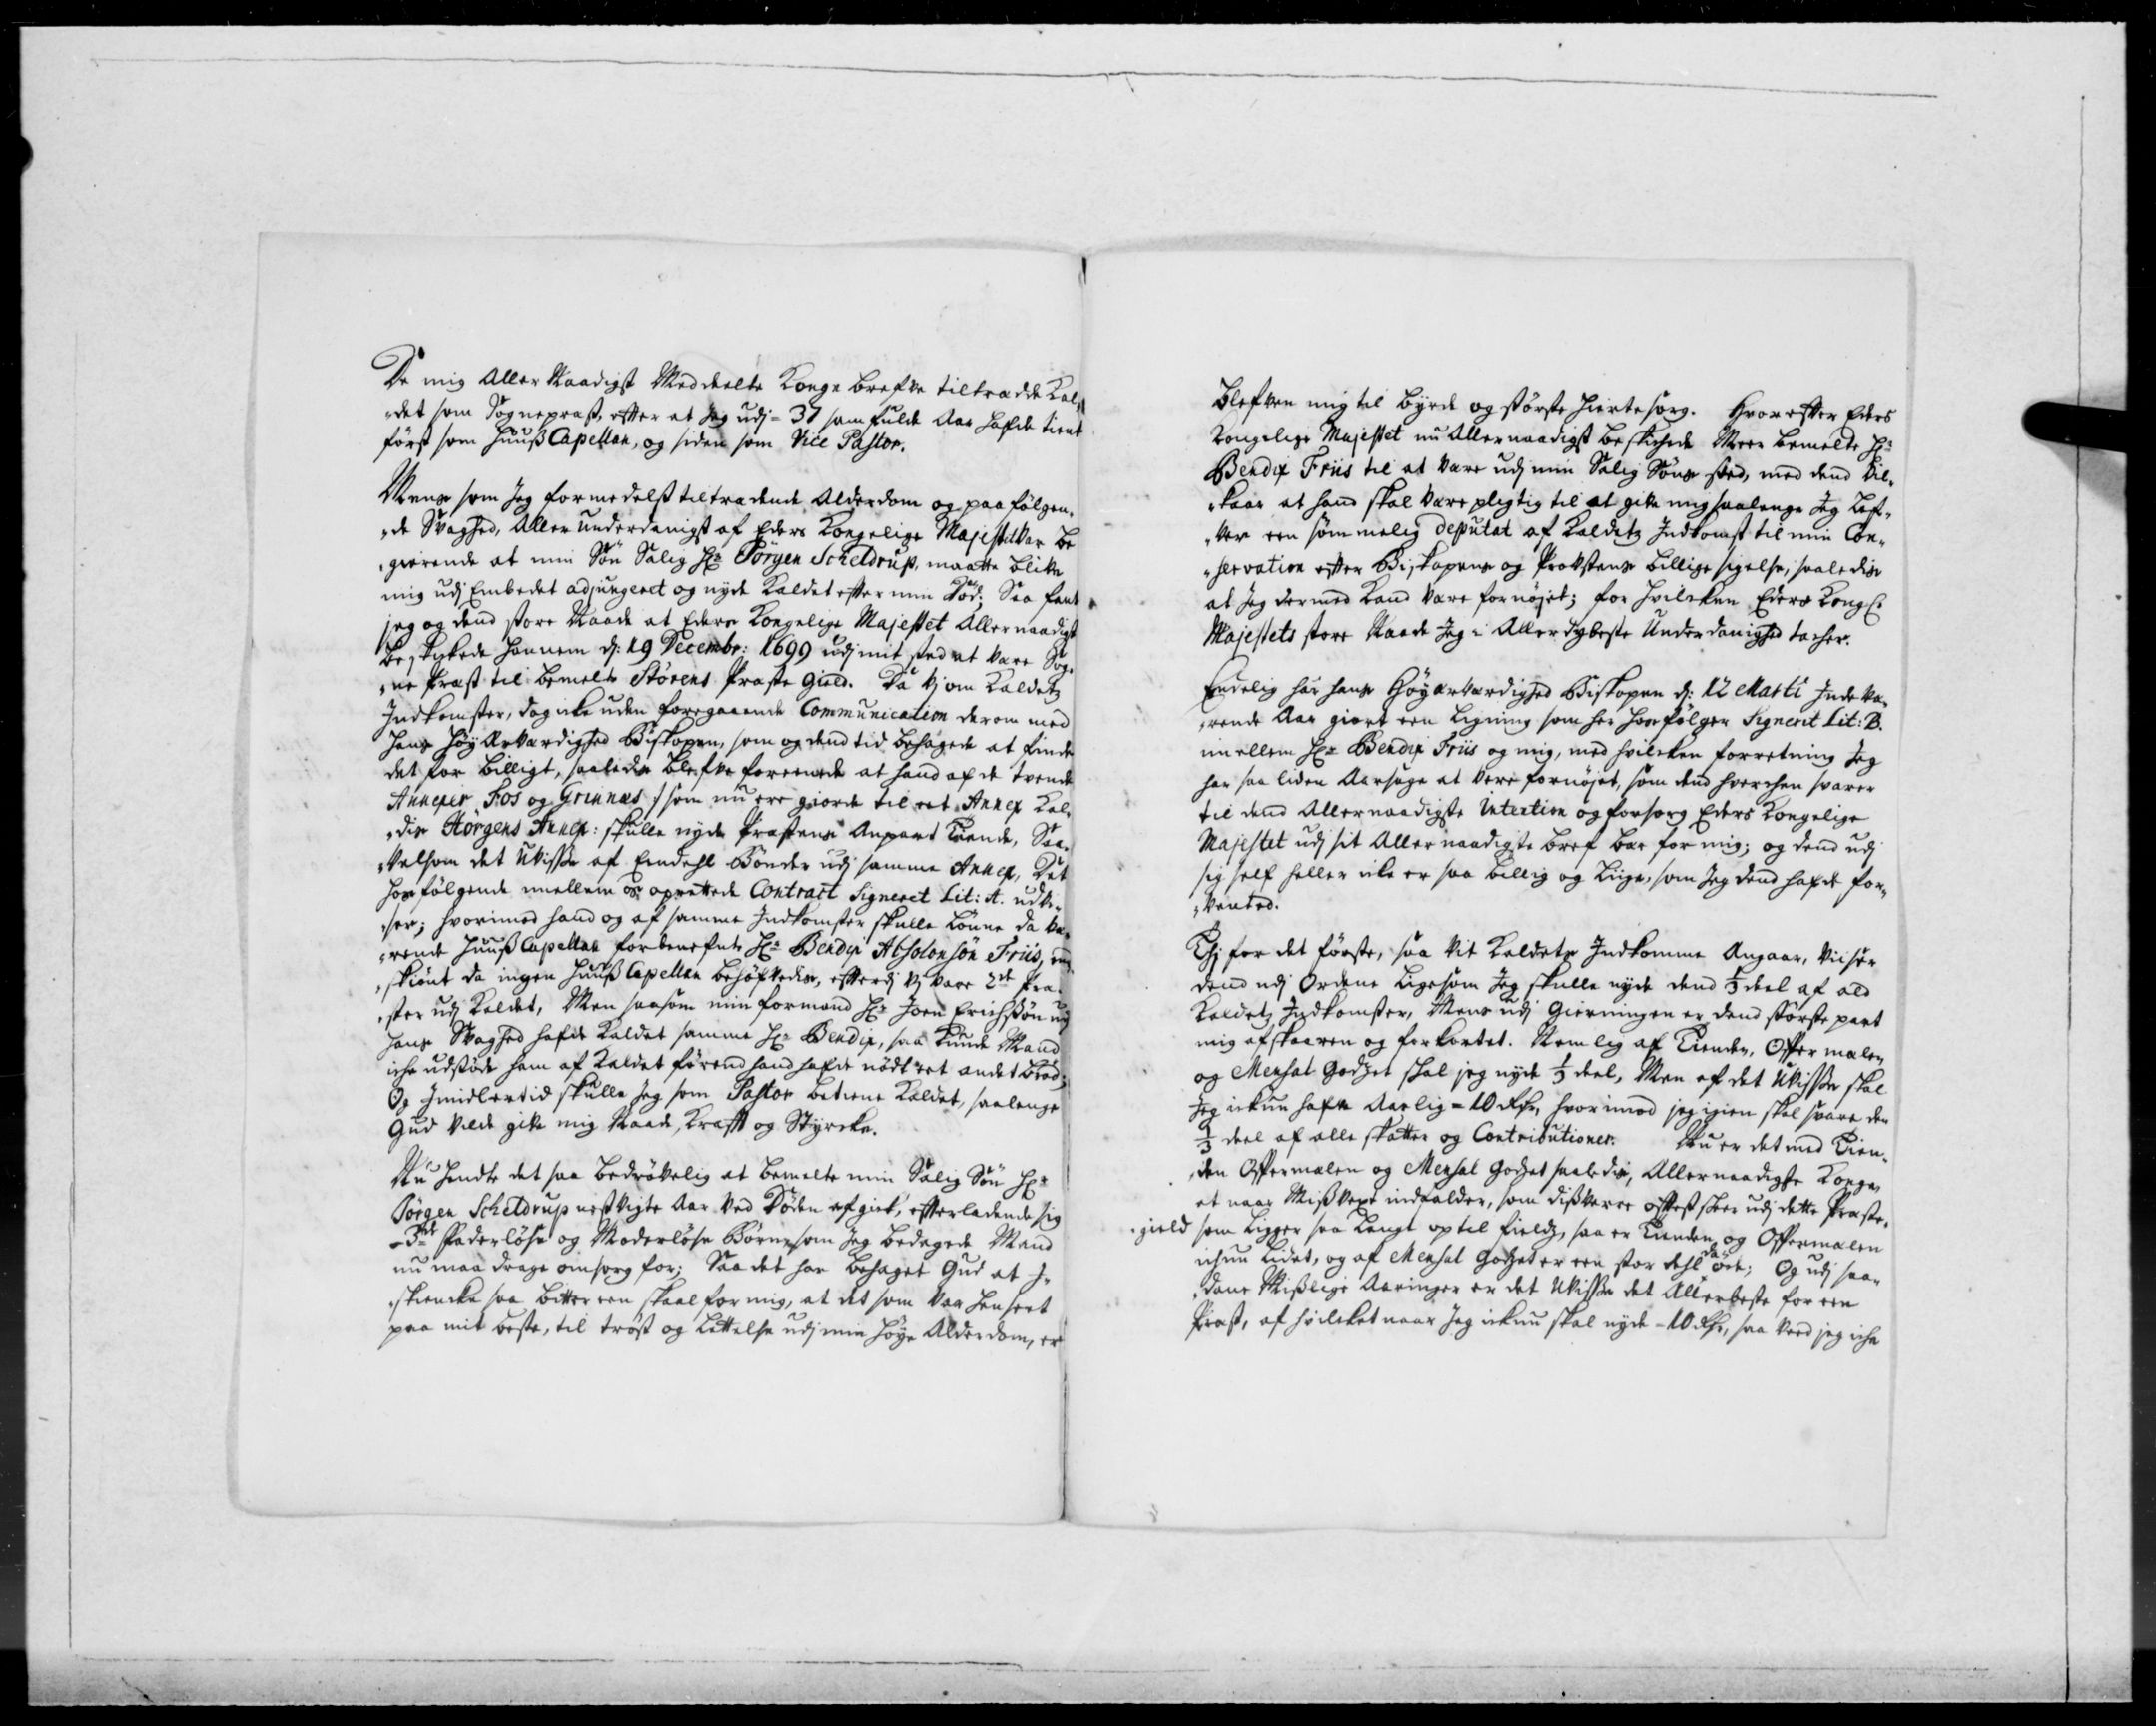 De mig Aller Naadigst Meddeelte Konge brefve tiltrædde Kal„
„det som Sognepræst, efter at Jeg udj = 37 sam fulde Aar hafde tient
först som Huuß Capellan, og siden som Vice Pastor.
Mens som Jeg formedelst tiltrædende Alderdom og paafölgen„
„de Svaghed, Aller underdanigst af Eders Kongelige Majestet var be
„gierende at min Sön Salig Hr Jörgen Scheldrup, maatte blifve
mig udj Embedet adjungeret og nyde Kaldet efter min Död; Saa fant
jeg og dend store Naade at Eders Kongelige Majestet Allernaadigst
beskikede hannem d: 19 Decembr: 1699 udj mit sted at være Sog„
„ne Præst til bemelte Störens Præste gield. Da vj om Kaldetz
Indkomster, dog icke uden foregaaende Communication derom med
hans Höy Ærværdighed Biskopen, som og dend tid behagede at finde
det for billigt, saaledes blefve foreenede at hand af de tvende
Annexer Fos og Grinnæs / som nu ere giorde til eet Annex kal„
„dis Hörgens Annex: skulle nyde Præstens Anpart Tiende, Saa„
„velsom det Uvisse af Eendehl Bönder udj samme Annex, Det
hosfölgende imellem os oprettede Contract Signeret Lit: A. udvi„
„ser; hvorimod hand og af samme Indkomster skulle lönne da væ„
„rende Huuß Capellan forbenefnte Hr Bendix Absolonsön Friis, end
„skiönt da ingen Huuß Capellan behöfvedes, efterdj vj vare 2de Præ„
„ster udj Kaldet, Men saasom min formand Hr Joen Erichssön udj
hans Svaghed hafde Kaldet samme Hr Bendix, saa kunde Mand
icke udstöde ham af Kaldet förend hand hafde nödt eet andet bröd;
Og Imidlertid skulle Jeg som Pastor betiene Kaldet, saalenge
Gud vilde gifve mig Naade, Krafft og Styrcke.
Nu hendte det saa bedröfvelig at bemelte min Salig Sön Hr
Jörgen Scheldrup nestvigte Aar ved Döden afgick, efterladende sig
= 3de Faderlöse og Moderlöse Börn, som Jeg bedagede Mand
nu maa drage omsorg for; Saa det har behaget Gud at I„
„skiencke saa bitter een skaal for mig, at det som var henseet
paa mit beste, til tröst og Lettelse udj min höye Alderdom, er
blefven mig til byrde og störste hiertesorg. Hvor efter Eders
Kongelige Majestet nu Allernaadigst beskickede Meer bemelte Hr
Bendix Friis til at være udj min Salig Söns sted, med dend Vil„
„kaar at hand skal være pligtig til at gifve mig saalenge Jeg Lef„
„ver een sömmelig deputat af Kaldetz Indkomst til min Con„
„servation efter Biskopens og Provstens billige sigelse, saaledis
at Jeg dermed kand være fornöyet; for hvilcken Eders Kongl:
Majestets store Naade Jeg i Allerdybeste Underdanighed tacker.
Endelig har hans Höyærværdighed Biskopen d: 12 Marti Indeva„
„rende Aar giort een Ligning som her hosfölger Signerit Lit: B.
imellem Hr Bendix Friis og mig, med hvilcken forretning Jeg
har saa liden Aarsage at vere fornöjet, som dend hverchen svarer
til dend Allernaadigste Intention og forsorg Eders Kongelige
Majestet udj sit Allernaadigste bref bær for mig; og dend udj
sig self heller icke er saa billig og Liige, som Jeg dend hafde for„
„ventet.
Thj for det förste, saa vit Kaldets Indkomme Angaar, Viiser
dend udj Ordene Ligesom Jeg skulle nyde dend 1/3 deel af ald
Kaldetz Indkomster, Mens udj Gierningen er dend störste part
mig afskaaren og forkortet. Nemlig af Tienden, Offermalen
og Mensal Godzet skal jeg nyde 1/3 deel, Men af det Uvisse skal
Jeg ickun hafve Aarlig = 10 Rdr, hvorimod jeg igien skal svare den
1/3 deel af alle skatter og Contributioner. Nu er det med Tien„
„den Offermalen og Mensal Godzet saaledis, Allernaadigste Konge,
at naar Mißvext indfalder, som dißverre oftest skeer udj dette Præste„
„gield som Ligger saa Langt op til fieldz, saa er Tienden og Offermalen
ickun Lidet, og af Mensal Godzet er een stor dehl öde; Og udj saa„
„dane Mißlige Aaringer er det Uvisse det Allerbeste for een
Præst, af hvilcket naar Jeg ickun skal nyde = 10 Rdr, saa veed jeg icke